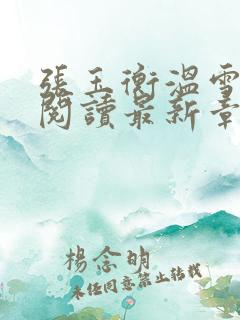 張玉衡溫雪
閱讀最新章
楊念明
未經同意禁止轉載